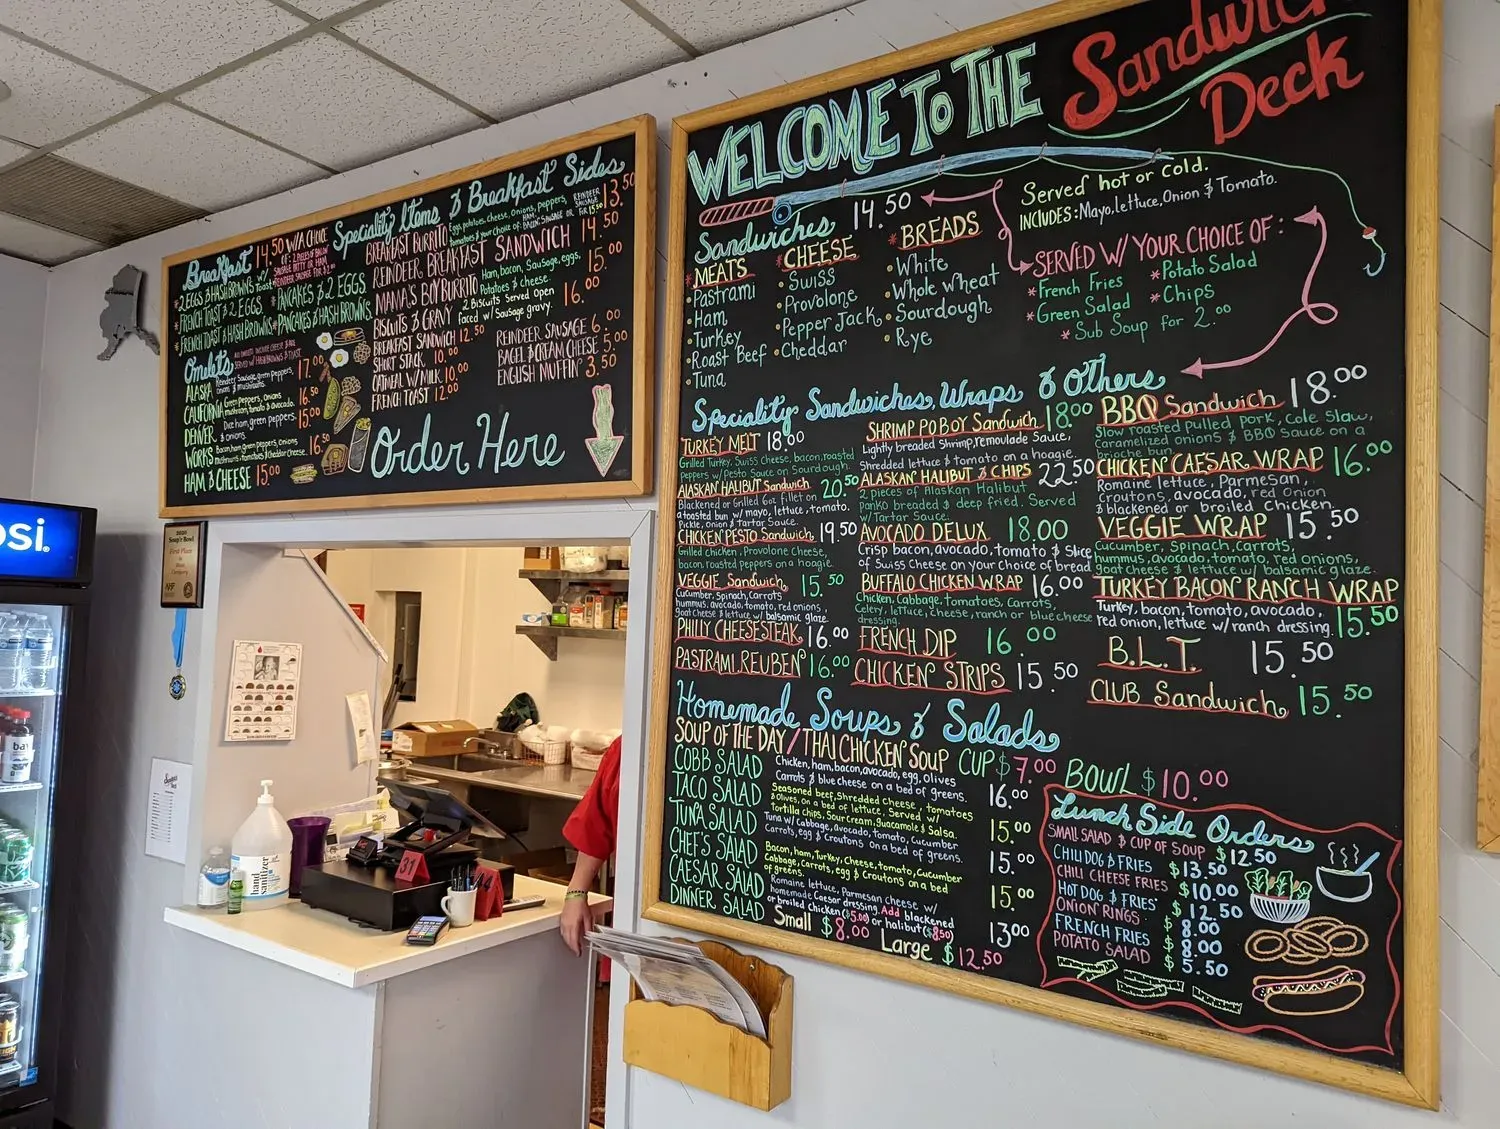 Breakfast 14.50 W/A CHOICE
OF: 2 PIECES OF BACON
SAUSAGE PATTY OR HAM
REINDEER SAUSAGE FOR $2.00
*2 EGGS & HASHBROWNS W/ Toast
*FRENCH TOAST & 2 EGGS
*FRENCH TOAST & HASH BROWNS
*PANCAKES & 2 EGGS
*PANCAKES & HASH BROWNS
Omelets
SERVED W/ HASHBROWNS & TOAST
ALASKA Reindeer Sausage, green peppers, onion & mushrooms. 17.00
CALIFORNIA Green peppers, onions mushroom, tomato & avocado. 16.50
DENVER Dice ham, green peppers, & onions. 15.00
WORKS Bacon, ham, green peppers, onions mushrooms, tomatoes & cheddar cheese. 16.50
HAM & CHEESE 15.00
Speciality Items & Breakfast Sides
BREAKFAST BURRITO Eggs, potatoes, cheese, onions, peppers, tomatoes & your choice of: HAM, BACON, SAUSAGE OR REINDEER SAUSAGE FOR 15.50 13.50
REINDEER BREAKFAST SANDWICH 14.50
MAMA'S BOY BURRITO Ham, bacon, sausage, eggs, Potatoes & cheese. 15.00
BISCUITS & GRAVY 2 Biscuits Served Open faced w/ Sausage gravy. 16.00
BREAKFAST SANDWICH 12.50
SHORT STACK 10.00
OATMEAL W/ MILK 10.00
FRENCH TOAST 12.00
REINDEER SAUSAGE 6.00
BAGEL & CREAM CHEESE 5.00
ENGLISH MUFFIN 3.50
Order Here
WELCOME TO THE Sandwich
Deck
Sandwiches 14.50
*MEATS
• Pastrami
• Ham
• Turkey
• Roast Beef
• Tuna
*CHEESE
• Swiss
• Provolone
• Pepper Jack
• Cheddar
*BREADS
• White
• Whole Wheat
• Sourdough
• Rye
Served hot or cold.
INCLUDES: Mayo, lettuce, Onion & Tomato.
SERVED W/ YOUR CHOICE OF:
*French Fries
*Potato Salad
*Green Salad
*Chips
*Sub Soup for 2.00
Speciality Sandwiches, Wraps, & Others
TURKEY MELT 18.00
Grilled Turkey, Swiss cheese, bacon, roasted
peppers w/ Pesto Sauce on Sourdough.
ALASKAN HALIBUT Sandwich 20.50
Blackened or Grilled 6oz fillet on
a toasted bun w/ mayo, lettuce, tomato,
Pickle, Onion & Tartar Sauce.
CHICKEN PESTO Sandwich 19.50
Grilled chicken, Provolone Cheese,
bacon, roasted peppers on a hoagie.
VEGGIE Sandwich 15.50
Cucumber, Spinach, Carrots
hummus, avocado, tomato, red onions,
goat cheese & lettuce w/ balsamic glaze.
PHILLY CHEESESTEAK 16.00
PASTRAMI REUBEN 16.00
SHRIMP PO BOY Sandwich 18.00
Lightly breaded Shrimp, remoulade Sauce,
Shredded lettuce & tomato on a hoagie.
ALASKAN HALIBUT & CHIPS 22.50
2 pieces of Alaskan Halibut
Panko breaded & deep fried. Served
w/ Tartar Sauce.
AVOCADO DELUX 18.00
Crisp bacon, avocado, tomato & Slice
of Swiss Cheese on your choice of bread
BUFFALO CHICKEN WRAP 16.00
Chicken, Cabbage, tomatoes, carrots,
Celery, lettuce, cheese, ranch or blue cheese
dressing.
FRENCH DIP 16.00
CHICKEN STRIPS 15.50
BBQ Sandwich 18.00
Slow roasted pulled pork, Cole Slaw,
Caramelized onions & BBQ Sauce on a
brioche bun.
CHICKEN CAESAR WRAP 16.00
Romaine lettuce, Parmesan,
Croutons, avocado, red onion
& blackened or broiled chicken.
VEGGIE WRAP 15.50
Cucumber, Spinach, Carrots,
hummus, avocado, tomato, red onions,
goat cheese & lettuce w/ balsamic glaze.
TURKEY BACON RANCH WRAP
Turkey, bacon, tomato, avocado,
red onion, lettuce w/ ranch dressing. 15.50
B.L.T. 15.50
CLUB Sandwich 15.50
Homemade Soups & Salads
SOUP OF THE DAY / THAI CHICKEN SOUP CUP $7.00 BOWL $10.00
COBB SALAD Chicken, ham, bacon, avocado, egg, olives
Carrots & blue cheese on a bed of greens. 16.00
TACO SALAD Seasoned beef, Shredded Cheese, tomatoes
& Olives, on a bed of lettuce, Served w/
Tortilla chips, Sour Cream, Guacamole & Salsa. 15.00
TUNA SALAD Tuna w/ Cabbage, avocado, tomato, cucumber
Carrots, egg & Croutons on a bed of greens. 15.00
CHEF'S SALAD Bacon, ham, Turkey, Cheese, tomato, Cucumber
Cabbage, Carrots, egg & Croutons on a bed
of greens. 15.00
CAESAR SALAD Romaine lettuce, Parmesan cheese w/
homemade Caesar dressing. Add blackened
or broiled chicken ($5.00) or halibut ($8.50) 13.00
DINNER SALAD Small $8.00 Large $12.50
Lunch Side Orders
SMALL SALAD & CUP OF SOUP $12.50
CHILI DOG & FRIES $13.50
CHILI CHEESE FRIES $10.00
HOT DOG & FRIES $12.50
ONION RINGS $8.00
FRENCH FRIES $8.00
POTATO SALAD $5.50
psi
2020
Soup'r Bowl
First Place
bai
hand
sanitizer
31
44